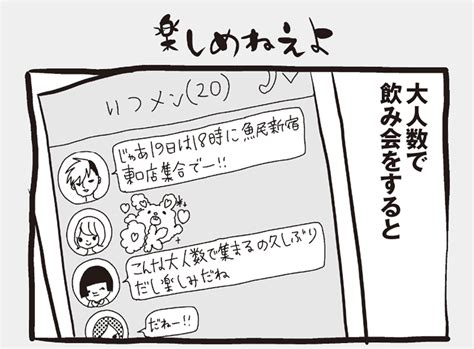 楽しめねえよ
大人数で
飲み会をすると
いつメン(20)
じゃあ19日は18時に魚民新宿
東口店集合でー!!
こんな大人数で集まるの久しぶり
だし楽しみだね
だねー!!